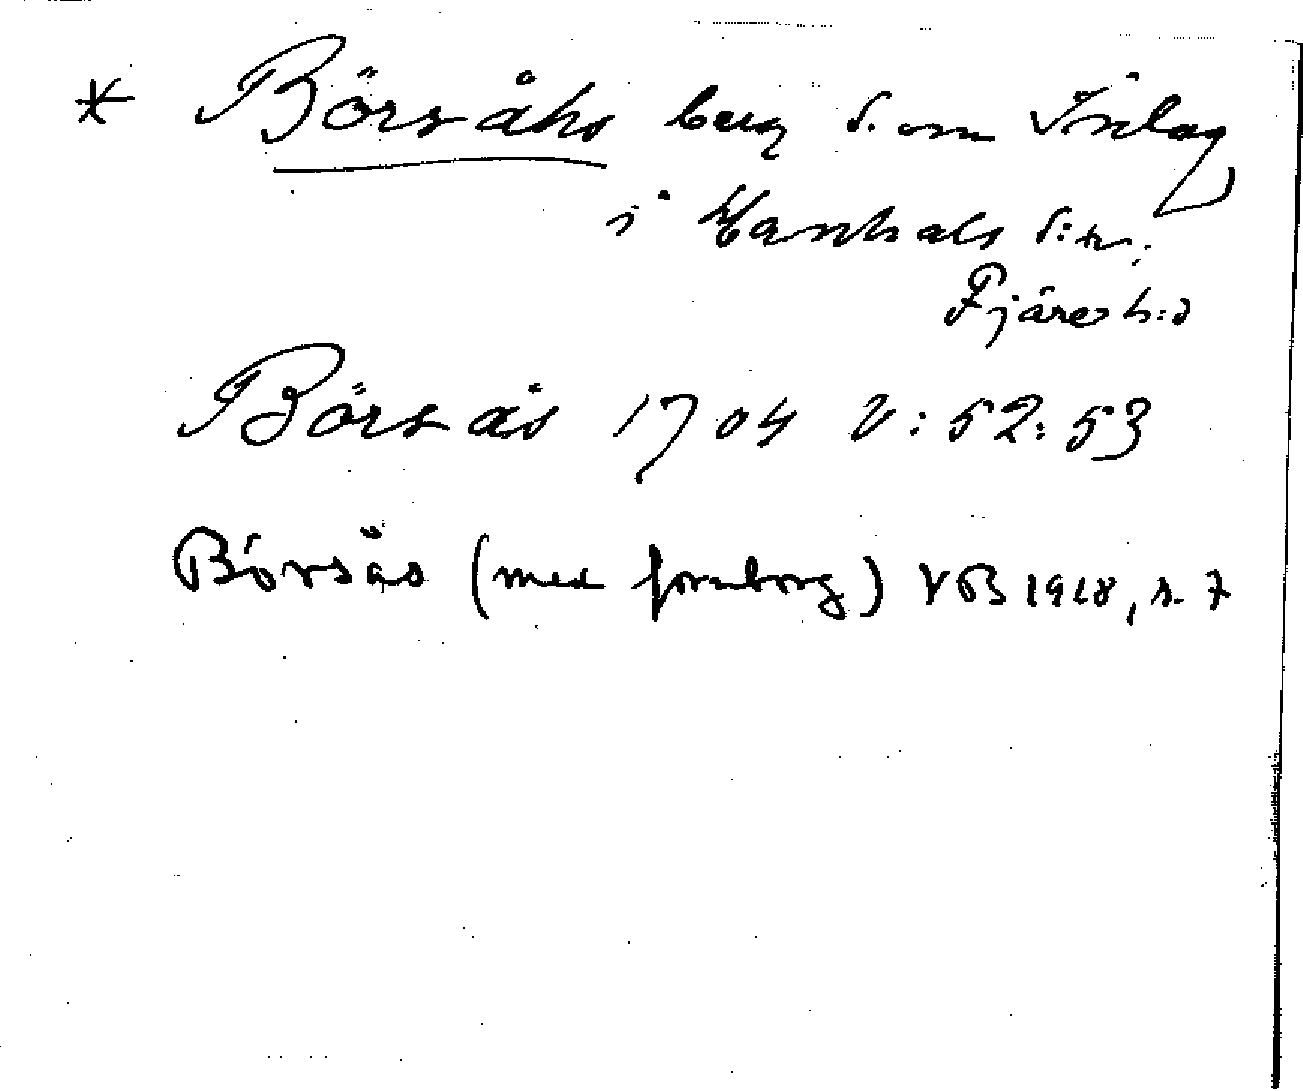 * Börsåhs berg S. om Torslag
i Hanhals s:n,
Fjäre h:d
Börsås 1704 V: 52: 53
Börsås (med fornborg) VBB 1918, s. 7